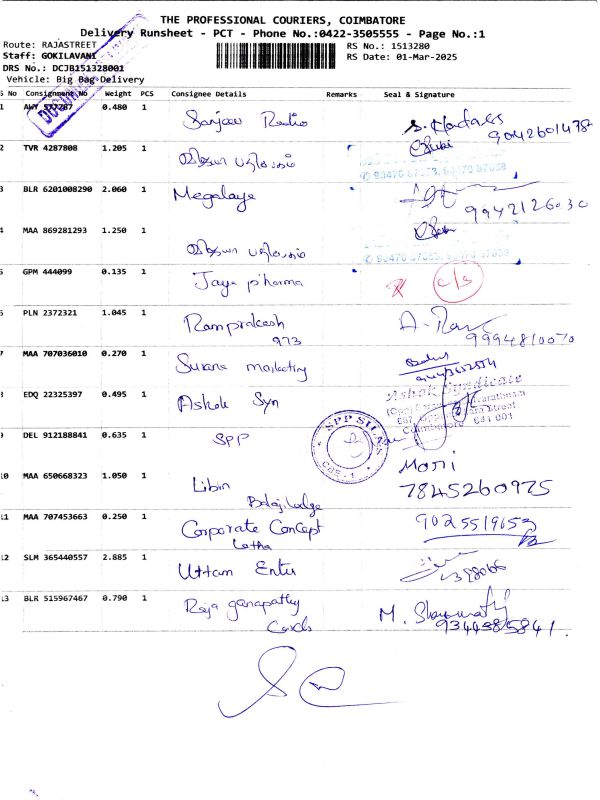 THE PROFESSIONAL COURIERS, COIMBATORE
Delivery Runsheet - PCT - Phone No.:0422-3505555 - Page No.:1
Route: RAJASTREET
RS No.: 1513280
Staff: GOKILAVANI
RS Date: 01-Mar-2025
DRS No.: DCJB151328001
Vehicle: Big Bag Delivery
S No Consignment No Weight PCS Consignee Details Remarks Seal & Signature
1 AWY 577787 0.480 1 Sanjeev Radio
9042601478
2 TVR 4287808 1.205 1
3 BLR 6201008290 2.060 1 Megalaya
9942126030
4 MAA 869281293 1.250 1
5 GPM 444099 0.135 1 Jaya pharma c/s
6 PLN 2372321 1.045 1 Ramprakash
973 9994810070
7 MAA 707036010 0.270 1 Surana marketing
8 EDQ 22325397 0.495 1 Ashok Syn
Ashok Syndicate
Coimbatore 641 001
9 DEL 912188841 0.635 1 SPP
SPP SILKS
CBE-1
10 MAA 650668323 1.050 1 Libin Mani
Balaji Lodge 7845260975
11 MAA 707453663 0.250 1 Corporate Concept 9025519653
Latha
12 SLM 365440557 2.885 1 Uttam Enter
13 BLR 515967467 0.790 1 Raja ganapathy M.
Cards 9344385841